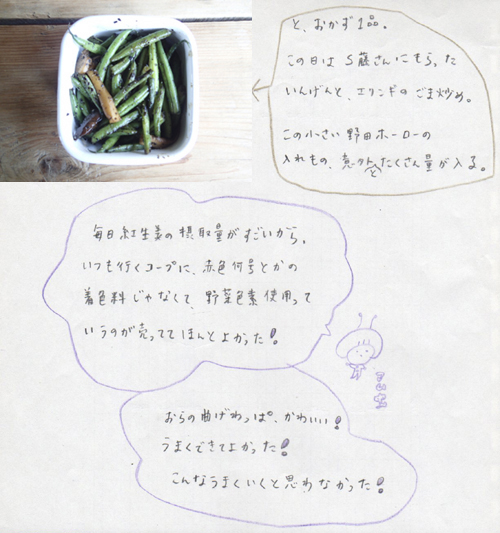 と、おかず1品。
この日は S藤さんにもらった
いんげんと、エリンギのごま炒め。
この小さい野田ホーローの
入れもの、意外とたくさん量が入る。
毎日紅生姜の摂取量がすごいから、
いつも行くコープに、赤色何号とかの
着色料じゃなくて、野菜色素使用って
いうのが売っててほんとよかった!
おらの曲げわっぱ、かわいい!
うまくできてよかった!
こんなうまくいくと思わなかった!